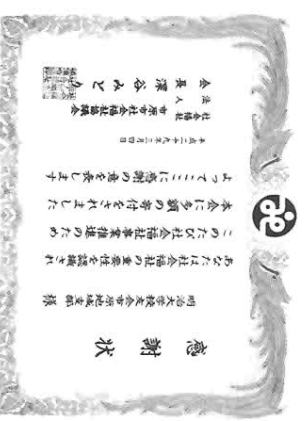 感謝状
明治大学校友会市原地域支部 様
あなたは社会福祉の重要性を認識され
このたび社会福祉事業推進のため
本会に多額の寄付をされました
よってここに感謝の意を表します
平成二十九年三月四日
社会福祉法人 市原市社会福祉協議会
会長 深谷みどり